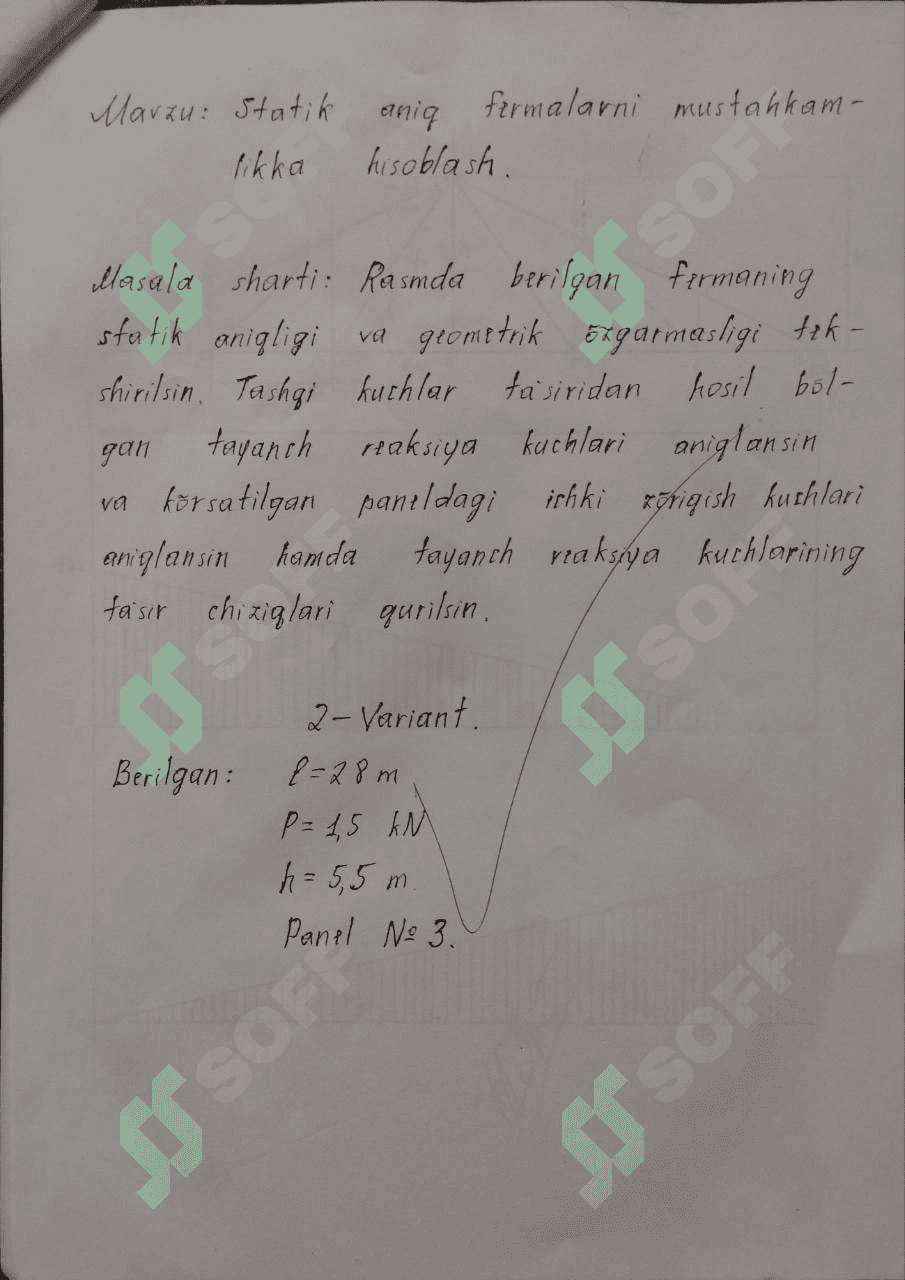 Mavzu: Statik aniq fermalarni mustahkam-
likka hisoblash.
Masala sharti: Rasmda berilgan fermaning
statik aniqligi va geometrik õzgarmasligi tek-
shirilsin. Tashqi kuchlar ta'siridan hosil bõl-
gan tayanch reaksiya kuchlari aniqlansin
va kõrsatilgan paneldagi ichki zõriqish kuchlari
aniqlansin hamda tayanch reaksiya kuchlarining
ta'sir chiziqlari qurilsin.
2-Variant.
Berilgan: l=28 m
P=1,5 kN
h=5,5 m.
Panel № 3.
SOFF
SOFF
SOFF
SOFF
SOFF
SOFF